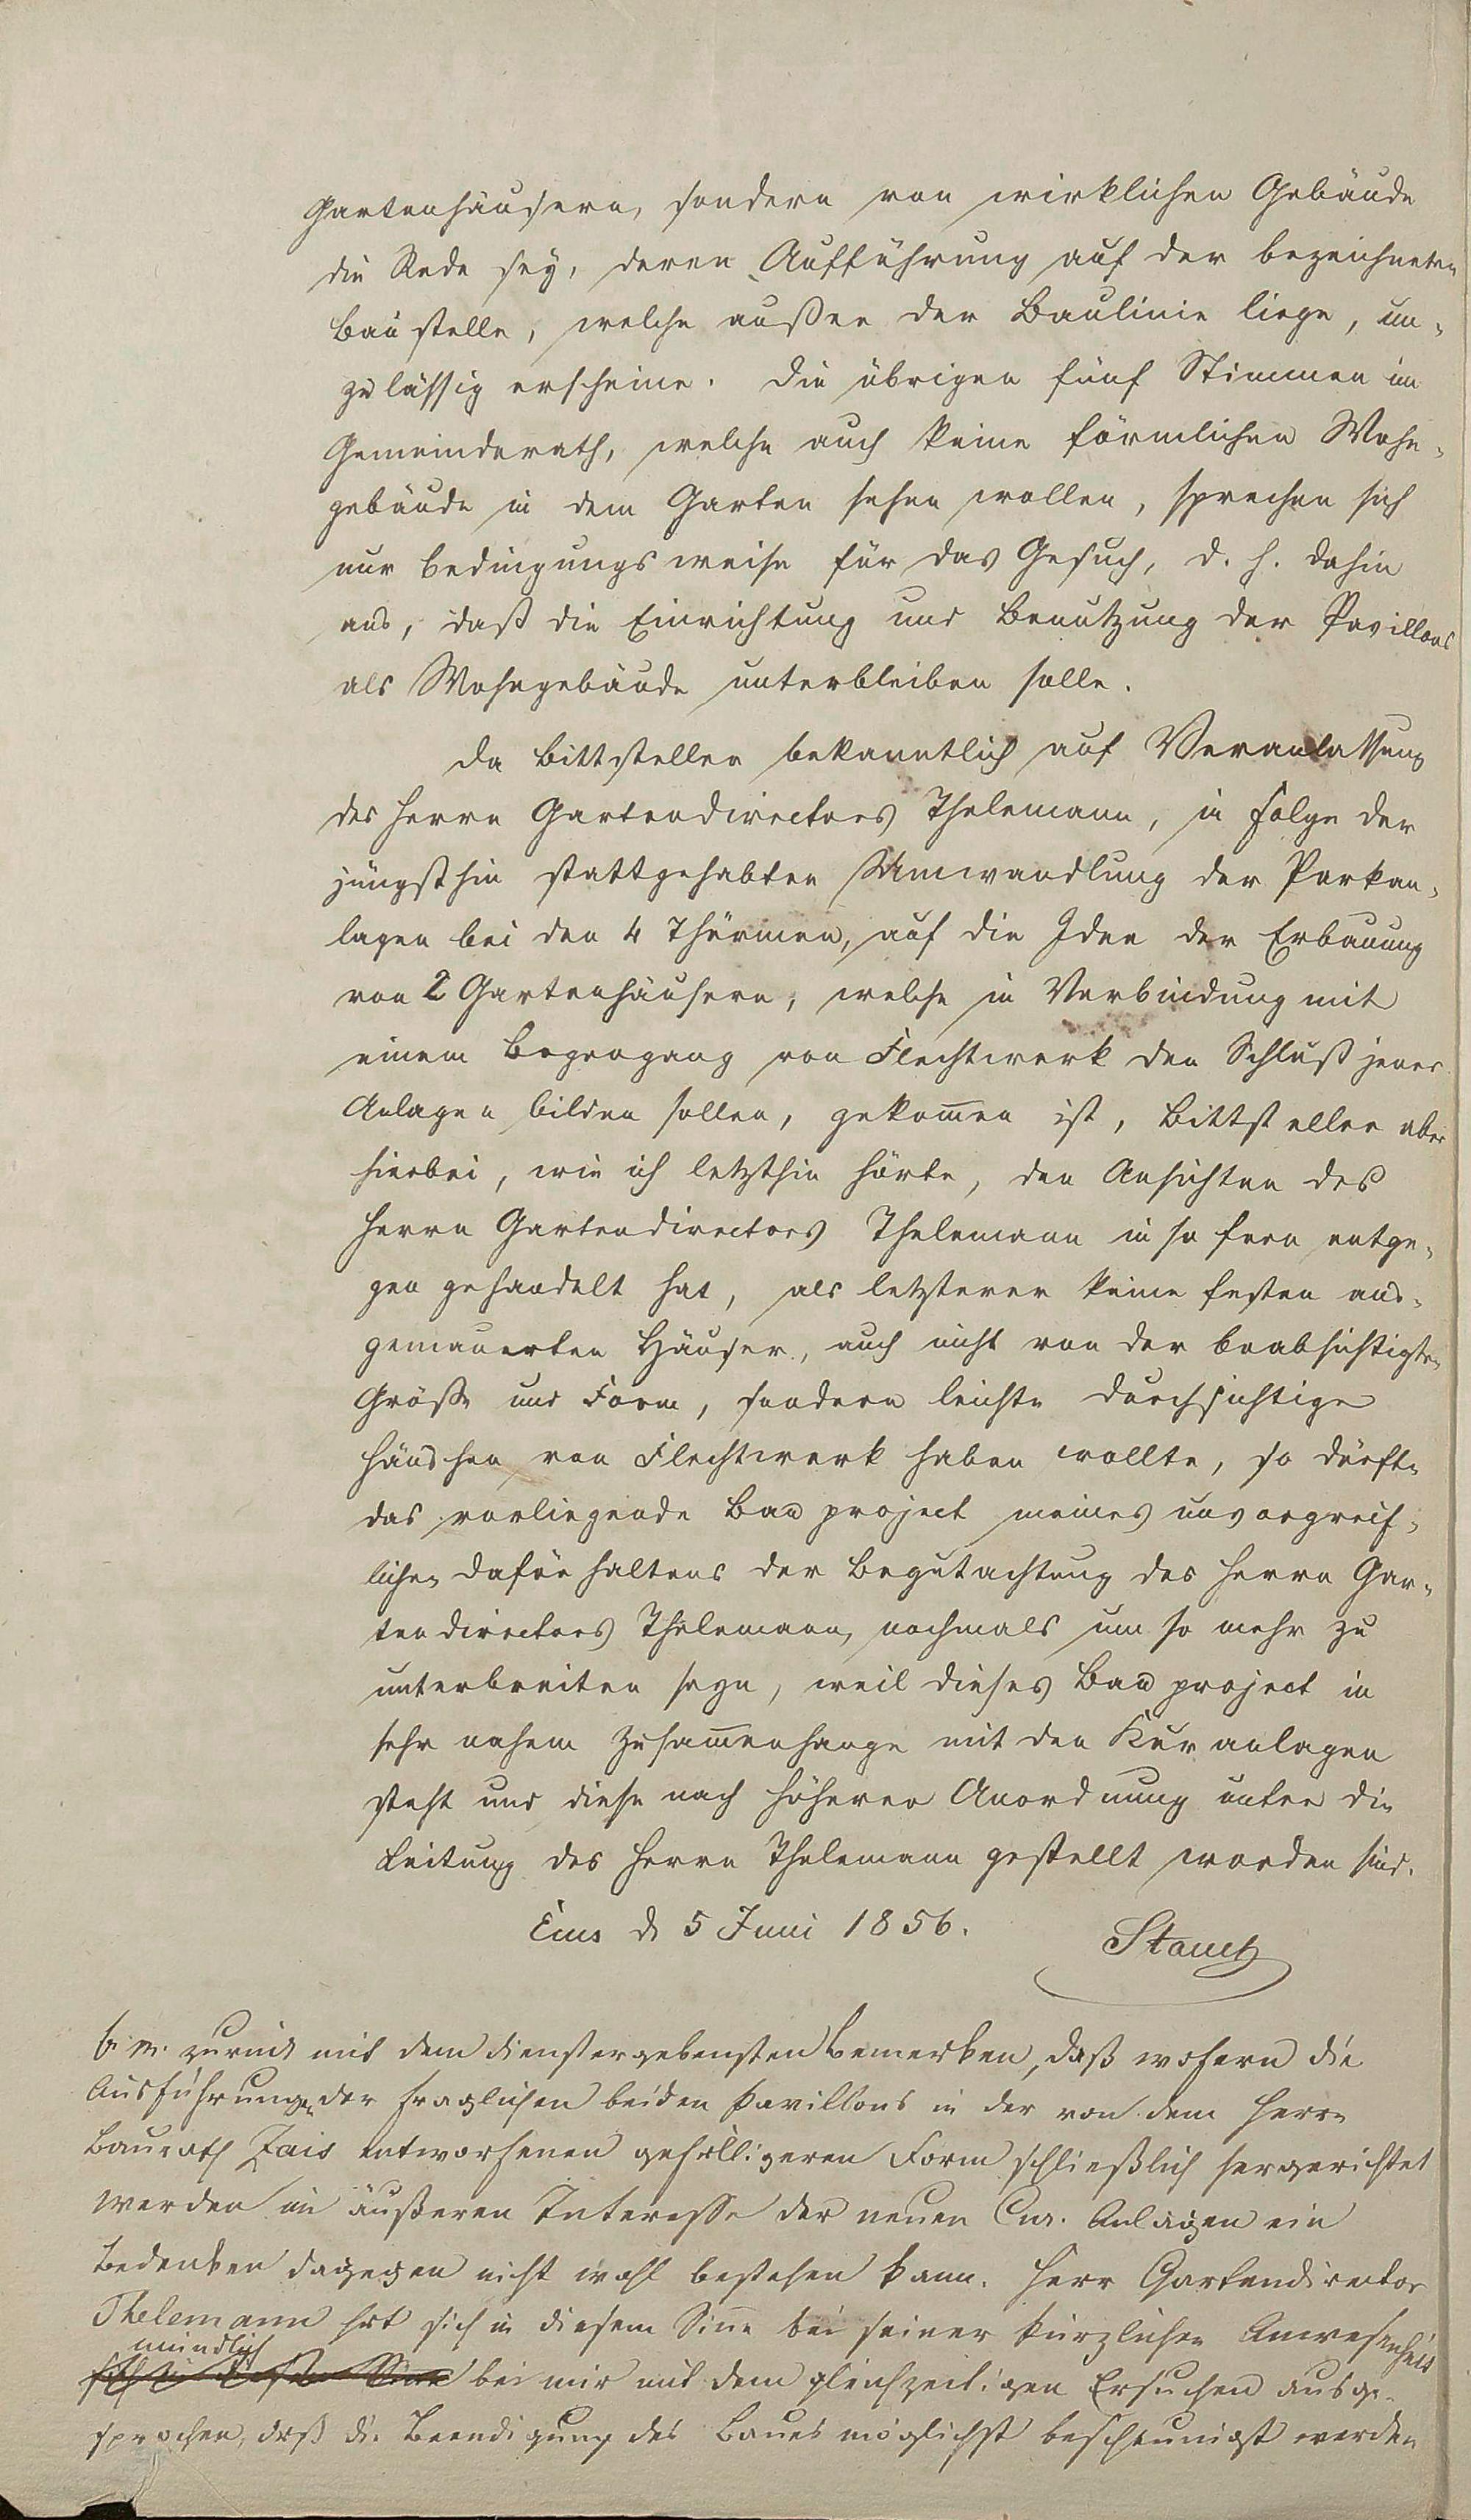 Gartenhäusern, sondern von wirklichen Gebäude
die Rede sey, deren Aufführung auf der bezeichneten
Baustelle, welche außer der Baulinie liege, un-
zulässig erscheine. Die übrigen fünf Stimmen im
Gemeinderath, welche auch keine förmlichen Wohn-
gebäude in dem Garten sehen wollen, sprechen sich
nur bedingungsweise für das Gesuch, d. h. dahin
aus, daß die Einrichtung und Benutzung der Pavillons
als Wohngebäude unterbleiben solle.
Da Bittsteller bekanntlich auf Veranlassung
des Herrn Gartendirectors Thelemann, in Folge der
jüngsthin stattgehabten Umwandlung der Parkan-
lagen bei den 4 Thürmen, auf die Idee der Erbauung
von 2 Gartenhäusern, welche in Verbindung mit
einem Bogengang von Flechtwerk den Schluß jener
Anlagen bilden sollen, gekom̅en ist, Bittsteller aber
hierbei, wie ich letzthin hörte, den Ansichten des
Herrn Gartendirectors Thelemann in so fern entge-
gen gehandelt hat, als letzterer keine festen aus-
gemauerten Häuser, auch nicht von der beabsichtigten
Größe und Form, sondern leichte durchsichtige
Häuschen von Flechtwerk haben wollte, so dürfte
das vorliegende Bauproject meines unvorgreif-
lichen Dafürhaltens der Begutachtung des Herrn Gar-
tendirectors Thelemann, nochmals um so mehr zu
unterbreiten seyn, weil dieses Bauproject in
sehr nahem Zusam̅enhange mit den Kuranlagen
steht und diese nach höherer Anordnung unter die
Leitung des Herrn Thelemann gestellt worden sind.
Ems d 5 Juni 1856.
Stauch
b. m. zurück mit dem dienstergebensten Bemerken, daß wofern die
Ausführungen der fraglichen beiden Pavillons in der von dem Herrn
Baurath Zais entworfenen gefälligeren Form schließlich hergerichtet
werden im äußeren Interesse der neuen Cur. Anlagen ein
Bedenken dagegen nicht wohl bestehen kann. Herr Gartendirector
Thelemann hat sich in diesem Sinne bei seiner kürzlichen Anwesenheit
mündlich
sich in diesem Sinne bei mir mit dem gleichzeitigen Ersuchen ausge-
sprochen, daß die Beendigung des Baues möglichst beschleunigt werden